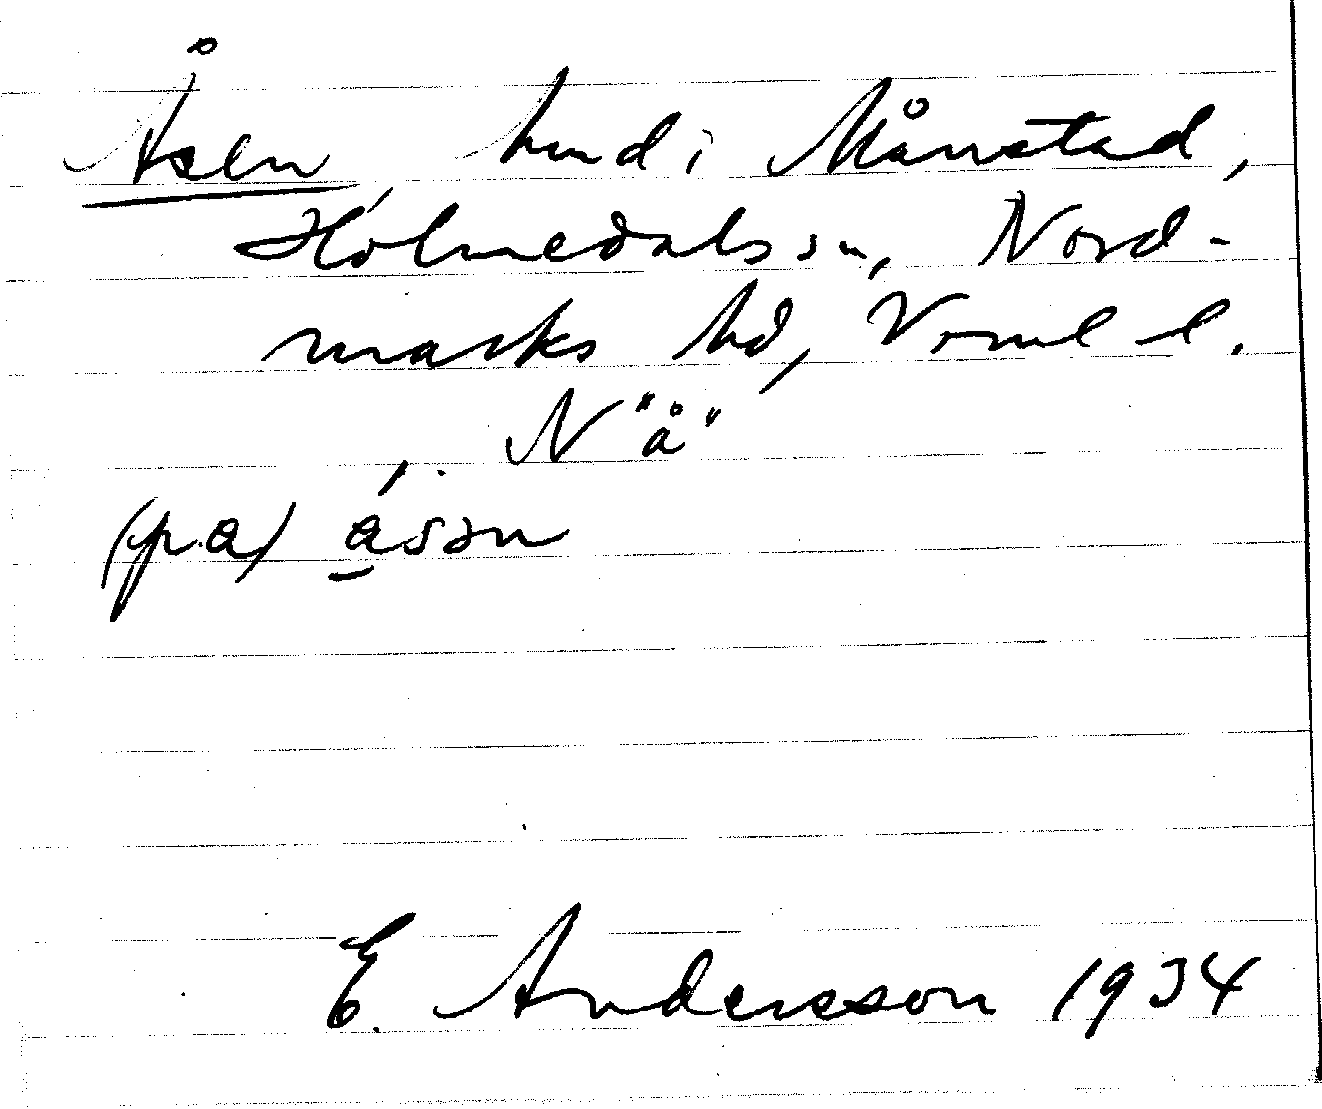 Åsen, hmd i Månstad,
Holmedals sn, Nord-
marks hd, Vrml l.
N "å"
(pa) a̱sən
E. Andersson 1934